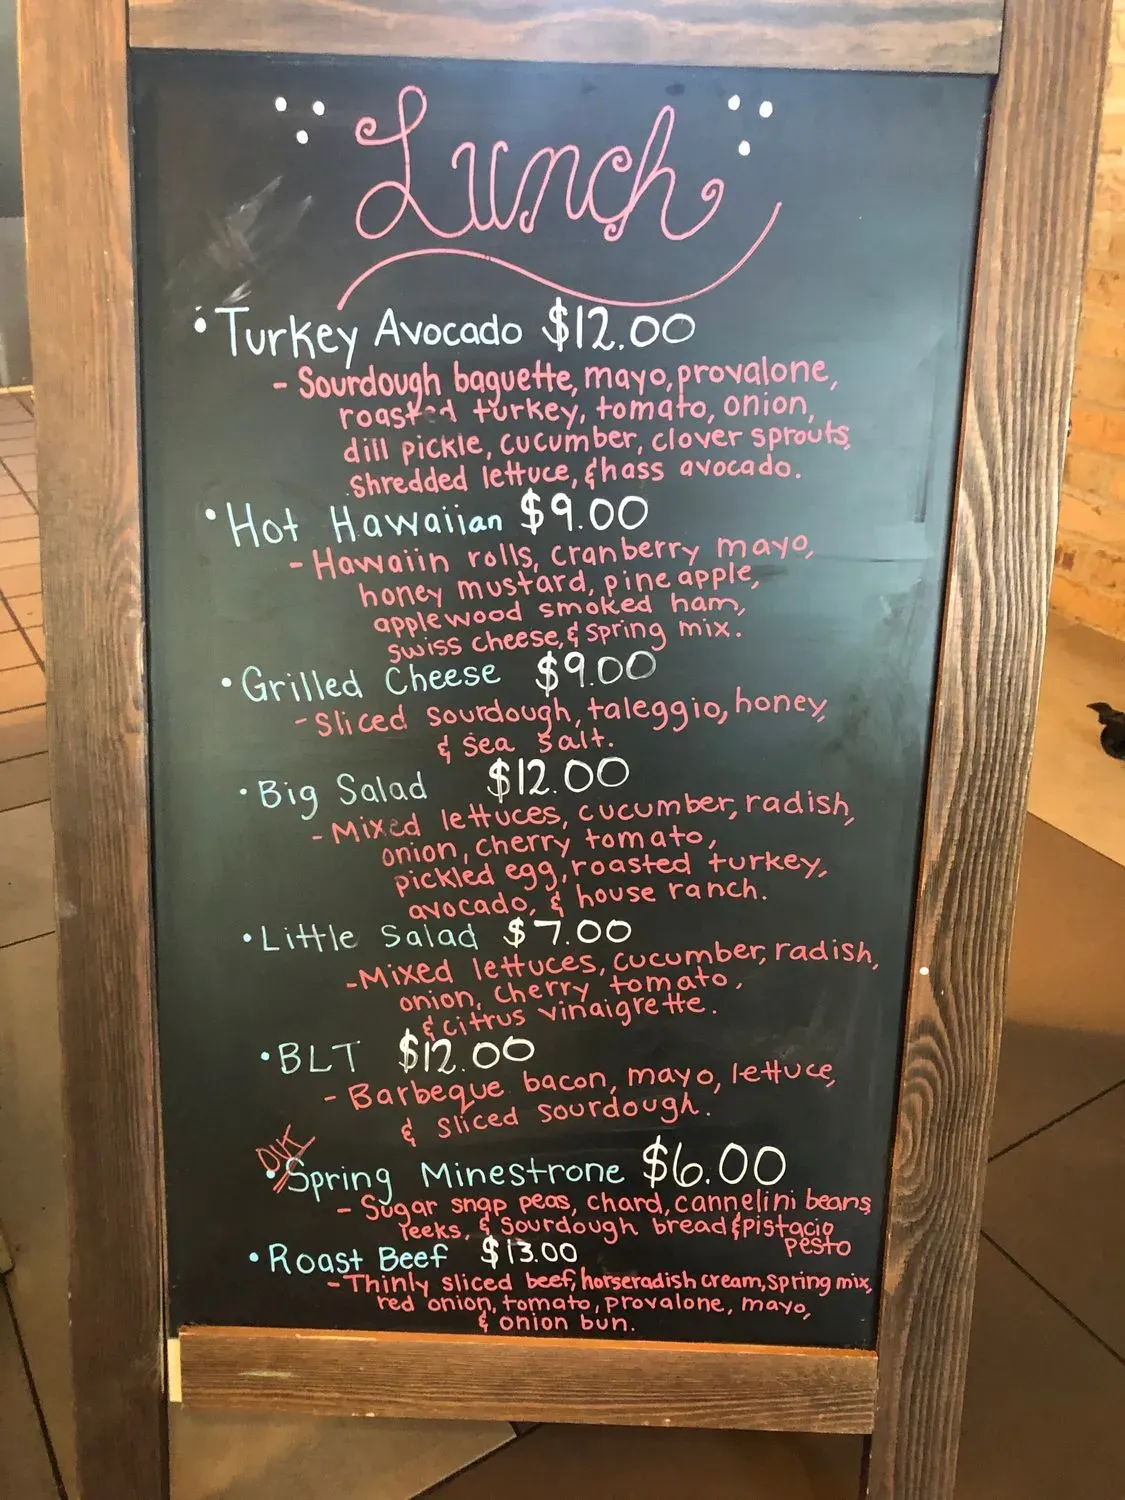 Lunch
• Turkey Avocado $12.00
- Sourdough baguette, mayo, provalone,
roasted turkey, tomato, onion,
dill pickle, cucumber, clover sprouts,
shredded lettuce, & hass avocado.
• Hot Hawaiian $9.00
- Hawaiin rolls, cranberry mayo,
honey mustard, pineapple,
applewood smoked ham,
swiss cheese, & spring mix.
• Grilled Cheese $9.00
- Sliced sourdough, taleggio, honey,
& sea salt.
• Big Salad $12.00
- Mixed lettuces, cucumber, radish,
onion, cherry tomato,
pickled egg, roasted turkey,
avocado, & house ranch.
• Little Salad $7.00
- Mixed lettuces, cucumber, radish,
onion, cherry tomato,
& citrus vinaigrette.
• BLT $12.00
- Barbeque bacon, mayo, lettuce,
& sliced sourdough.
• Spring Minestrone $6.00
- Sugar snap peas, chard, cannelini beans,
leeks, & sourdough bread & pistacio
pesto
• Roast Beef $13.00
- Thinly sliced beef, horseradish cream, spring mix,
red onion, tomato, provalone, mayo,
& onion bun.